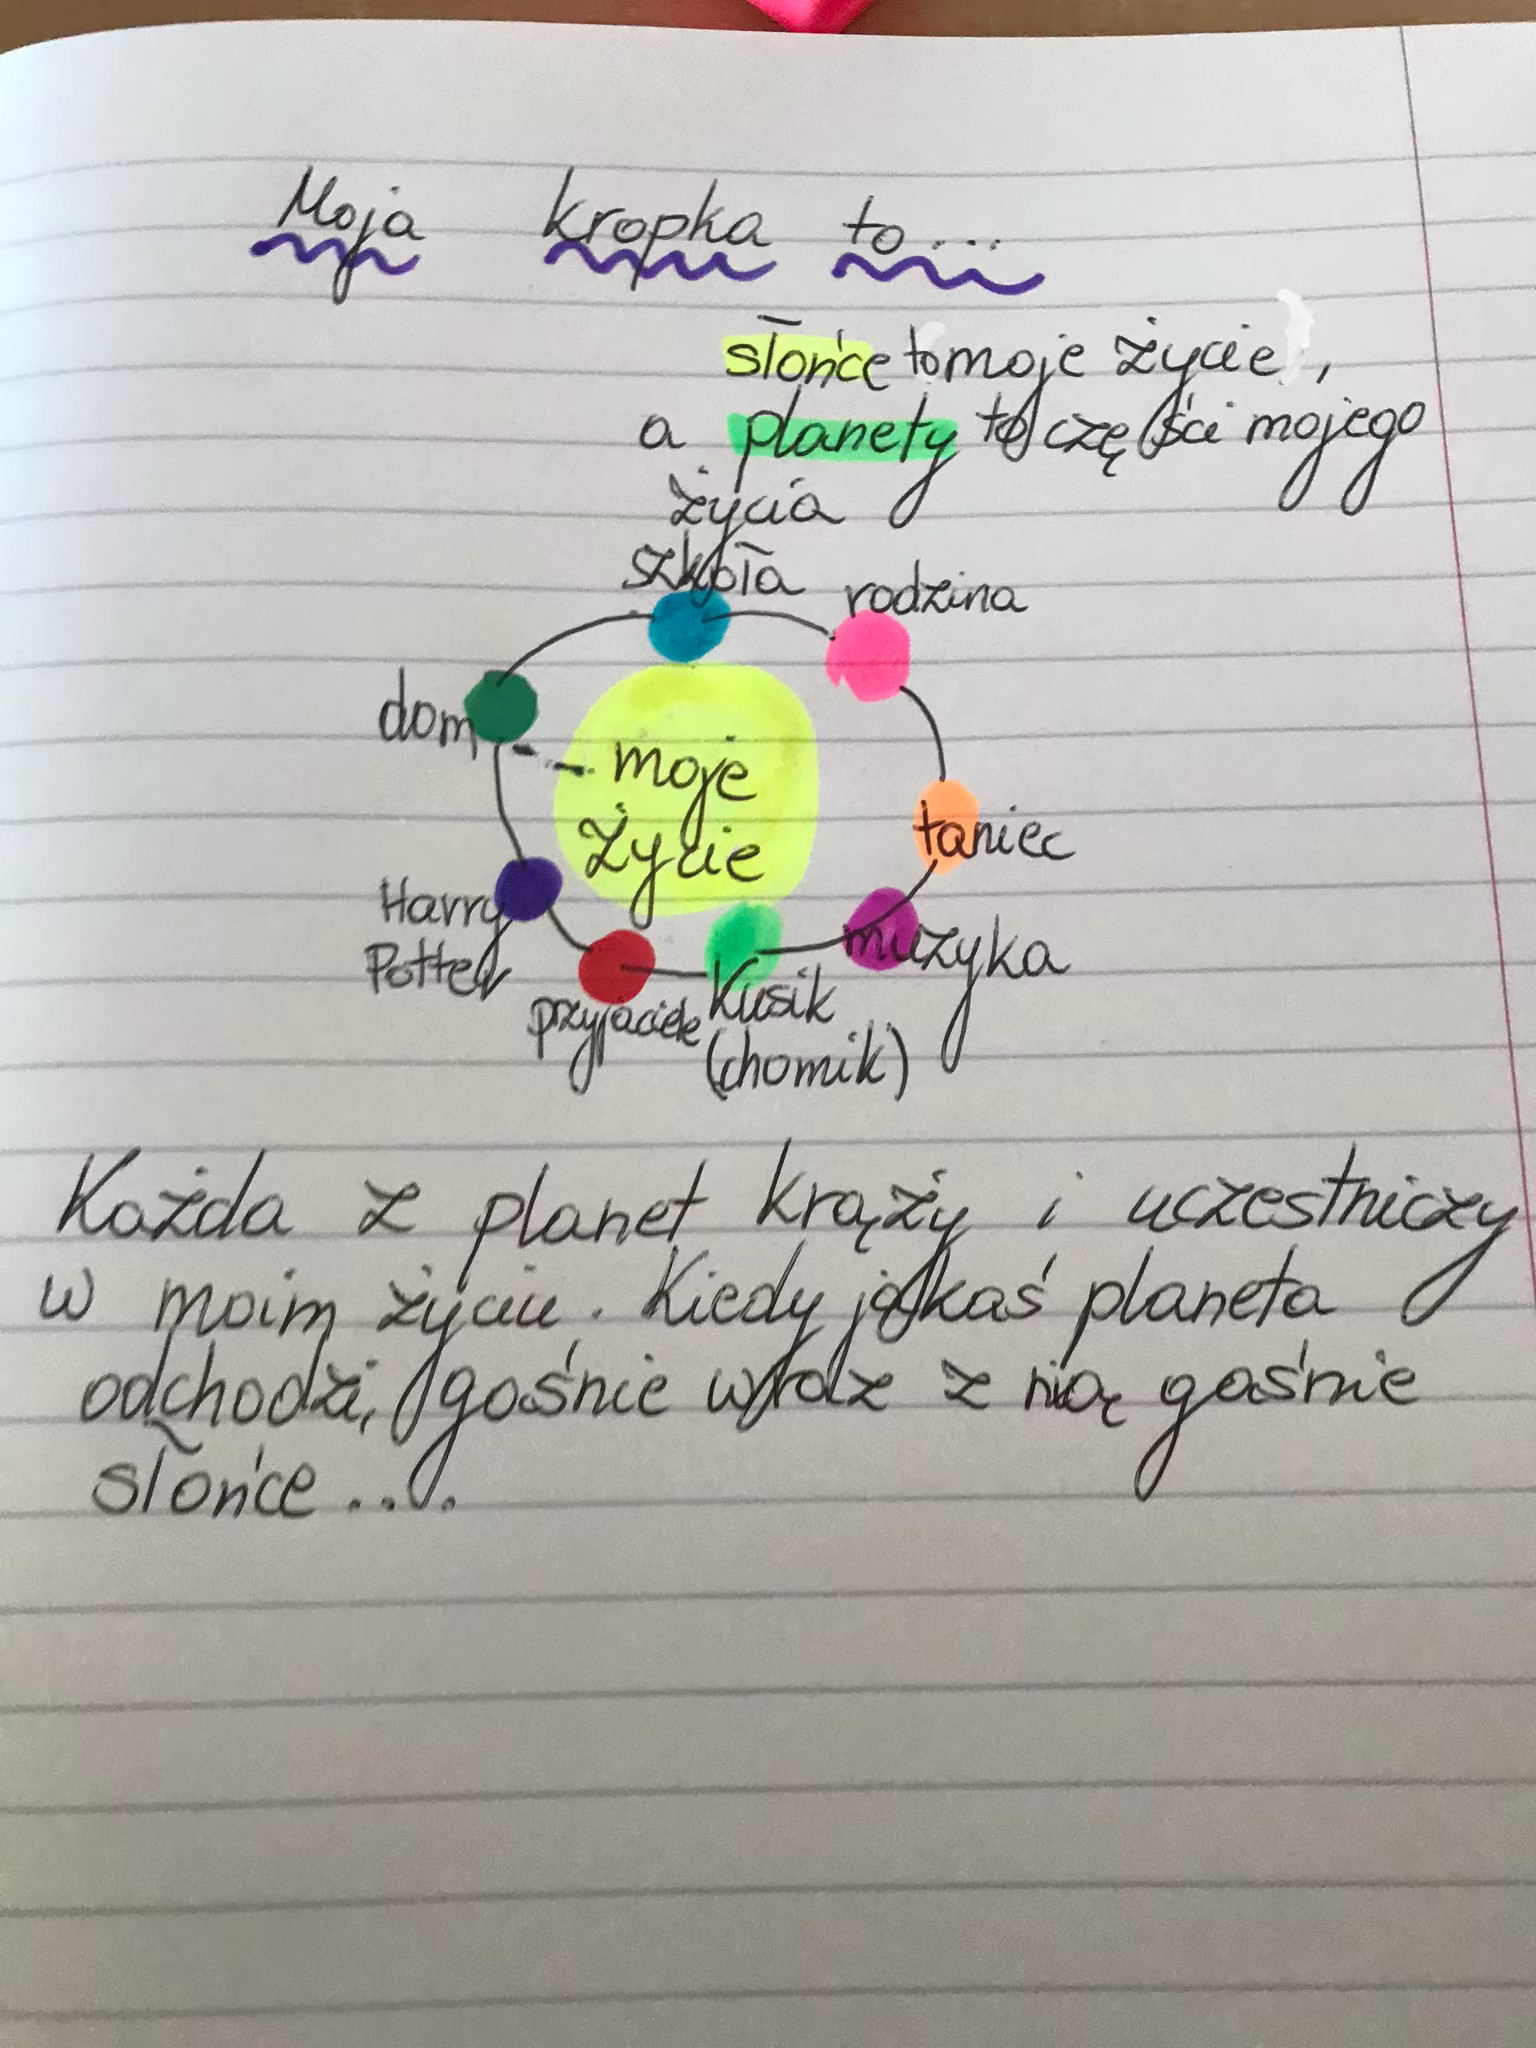 Moja kropka to...
słońce to moje życie,
a planety to części mojego
życia
szkoła
rodzina
dom
moje
życie
taniec
Harry
Potter
muzyka
przyjaciele
Kusik
(chomik)
Każda z planet krąży i uczestniczy
w moim życiu. Kiedy jakaś planeta
odchodzi, gaśnie wraz z nią gaśnie
słońce....